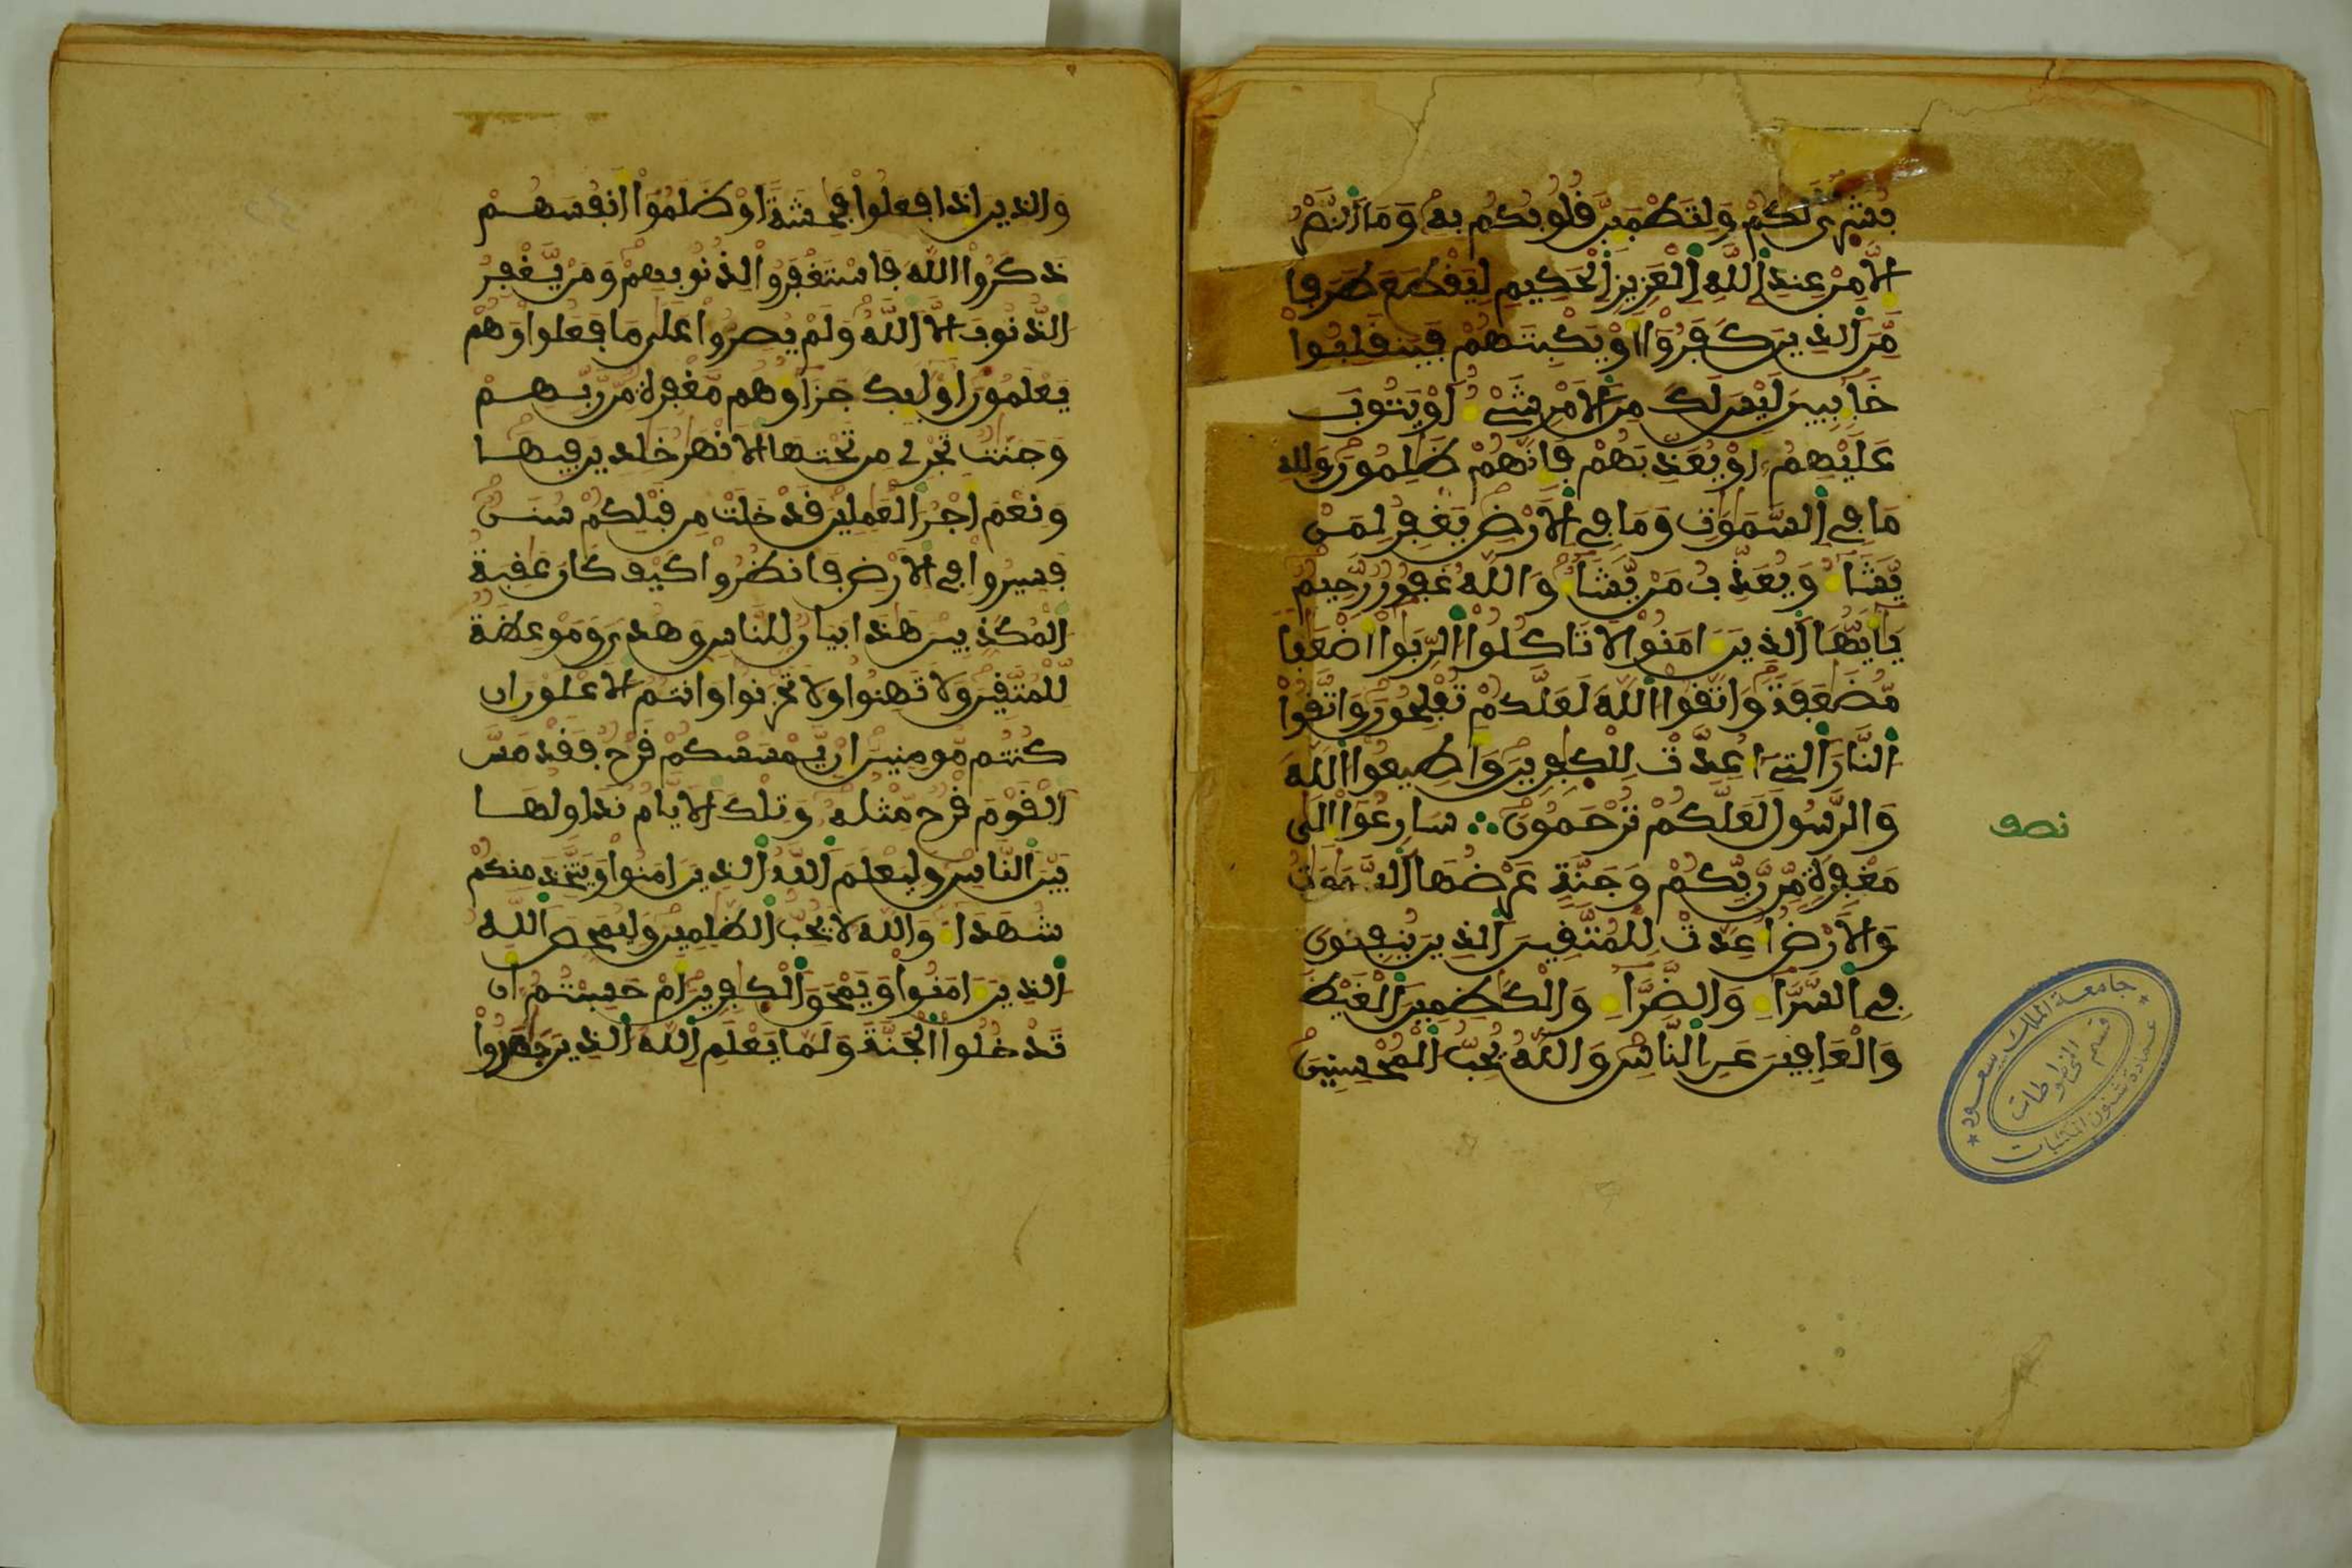 بُشْرٜى لَكُمْ وَلِتَطْمَئِنَّ قُلُوبُكُم بِهِ وَمَا اَلنَّصْرُ
إِلَّا مِنْ عِندِ اِللَّهِ اِلْعَزِيزِ اِلْحَكِيمِ لِيَقْطَعَ طَرَفا
مِّنَ اَلذِينَ كَفَرُوٓاْ أَوْ يَكْبِتَهُمْ فَيَنقَلِبُواْ
خَآئِبِينَ لَيْسَ لَكَ مِنَ اَلَامْرِ شَےْءٌ اَوْ يَتُوبَ
عَلَيْهِمُۥ أَوْ يُعَذِّبَهُمْ فَإِنَّهُمْ ظَٰلِمُونَ وَلِلهِ
مَا فِے اِلسَّمَٰوَٰتِ وَمَا فِے اِلَارْضِ يَغْفِرُ لِمَنْ
يَّشَآءُ وَيُعَذِّبُ مَنْ يَّشَآءُ وَاللَّهُ غَفُورٌ رَّحِيمٌ
يَٰٓأَيُّهَا اَلذِينَ ءَامَنُواْ لَا تَاكُلُواْ اُلرِّبَوٰاْ أَضْعَٰفا
مُّضَٰعَفَةً وَاتَّقُواْ اُللَّهَ لَعَلَّكُمْ تُفْلِحُونَ وَاتَّقُواْ
اُلنَّارَ اَلتِےٓ أُعِدَّتْ لِلْكٰفِرِينَ وَأَطِيعُواْ اُللَّهَ
وَالرَّسُولَ لَعَلَّكُمْ تُرْحَمُونَ ∴ سَارِعُوٓاْ إِلَىٰ
مَغْفِرَةٍ مِّن رَّبِّكُمْ وَجَنَّةٍ عَرْضُهَا اَلسَّمَٰوَٰتُ
وَالَارْضُ أُعِدَّتْ لِلْمُتَّقِينَ اَلذِينَ يُنفِقُونَ
فِے اِلسَّرَّآءِ وَالضَّرَّآءِ وَالْكَٰظِمِينَ اَلْغَيْظَ
وَالْعَافِينَ عَنِ اِلنَّاسِ وَاللَّهُ يُحِبُّ اُلْمُحْسِنِينَ
نصف
جامعة الملك سعود
عمادة شئون المكتبات
قسم المخطوطات
وَالذِينَ إِذَا فَعَلُواْ فَٰحِشَةً اَوْ ظَلَمُوٓاْ أَنفُسَهُمْ
ذَكَرُواْ اللَّهَ فَاسْتَغْفَرُواْ لِذُنُوبِهِمْ وَمَنْ يَّغْفِرُ
الذُّنُوبَ إِلَّا اَللَّهُ وَلَمْ يُصِرُّواْ عَلَىٰ مَا فَعَلُواْ وَهُمْ
يَعْلَمُونَ أُوْلَٰٓئِكَ جَزَآؤُهُم مَّغْفِرَةٌ مِّن رَّبِّهِمْ
وَجَنَّٰتٌ تَجْرِے مِن تَحْتِهَا اَلَانْهَٰرُ خَٰلِدِينَ فِيهَا
وَنِعْمَ أَجْرُ اُلْعَٰمِلِينَ قَدْ خَلَتْ مِن قَبْلِكُمْ سُنَنٌ
فَسِيرُواْ فِے اِلَارْضِ فَانظُرُواْ كَيْفَ كَانَ عَٰقِبَةُ
اُلْمُكَذِّبِينَ هَٰذَا بَيَانٌ لِّلنَّاسِ وَهُدىً وَمَوْعِظَةٌ
لِّلْمُتَّقِينَ وَلَا تَهِنُواْ وَلَا تَحْزَنُواْ وَأَنتُمُ اُلَاعْلَوْنَ إِن
كُنتُم مُّومِنِينَ إِنْ يَّمْسَسْكُمْ قَرْحٌ فَقَدْ مَسَّ
اَلْقَوْمَ قَرْحٌ مِّثْلُهُۥ وَتِلْكَ اَلَايَّامُ نُدَاوِلُهَا
بَيْنَ اَلنَّاسِ وَلِيَعْلَمَ اَللَّهُ اُلذِينَ ءَامَنُواْ وَيَتَّخِذَ مِنكُمْ
شُهَدَآءَ وَاللَّهُ لَا يُحِبُّ اُلظَّٰلِمِينَ وَلِيُمَحِّصَ اَللَّهُ
اُلذِينَ ءَامَنُواْ وَيَمْحَقَ اَلْكٰفِرِينَ أَمْ حَسِبْتُمُۥٓ أَن
تَدْخُلُواْ اُلْجَنَّةَ وَلَمَّا يَعْلَمِ اِللَّهُ اُلذِينَ جَٰهَدُواْ